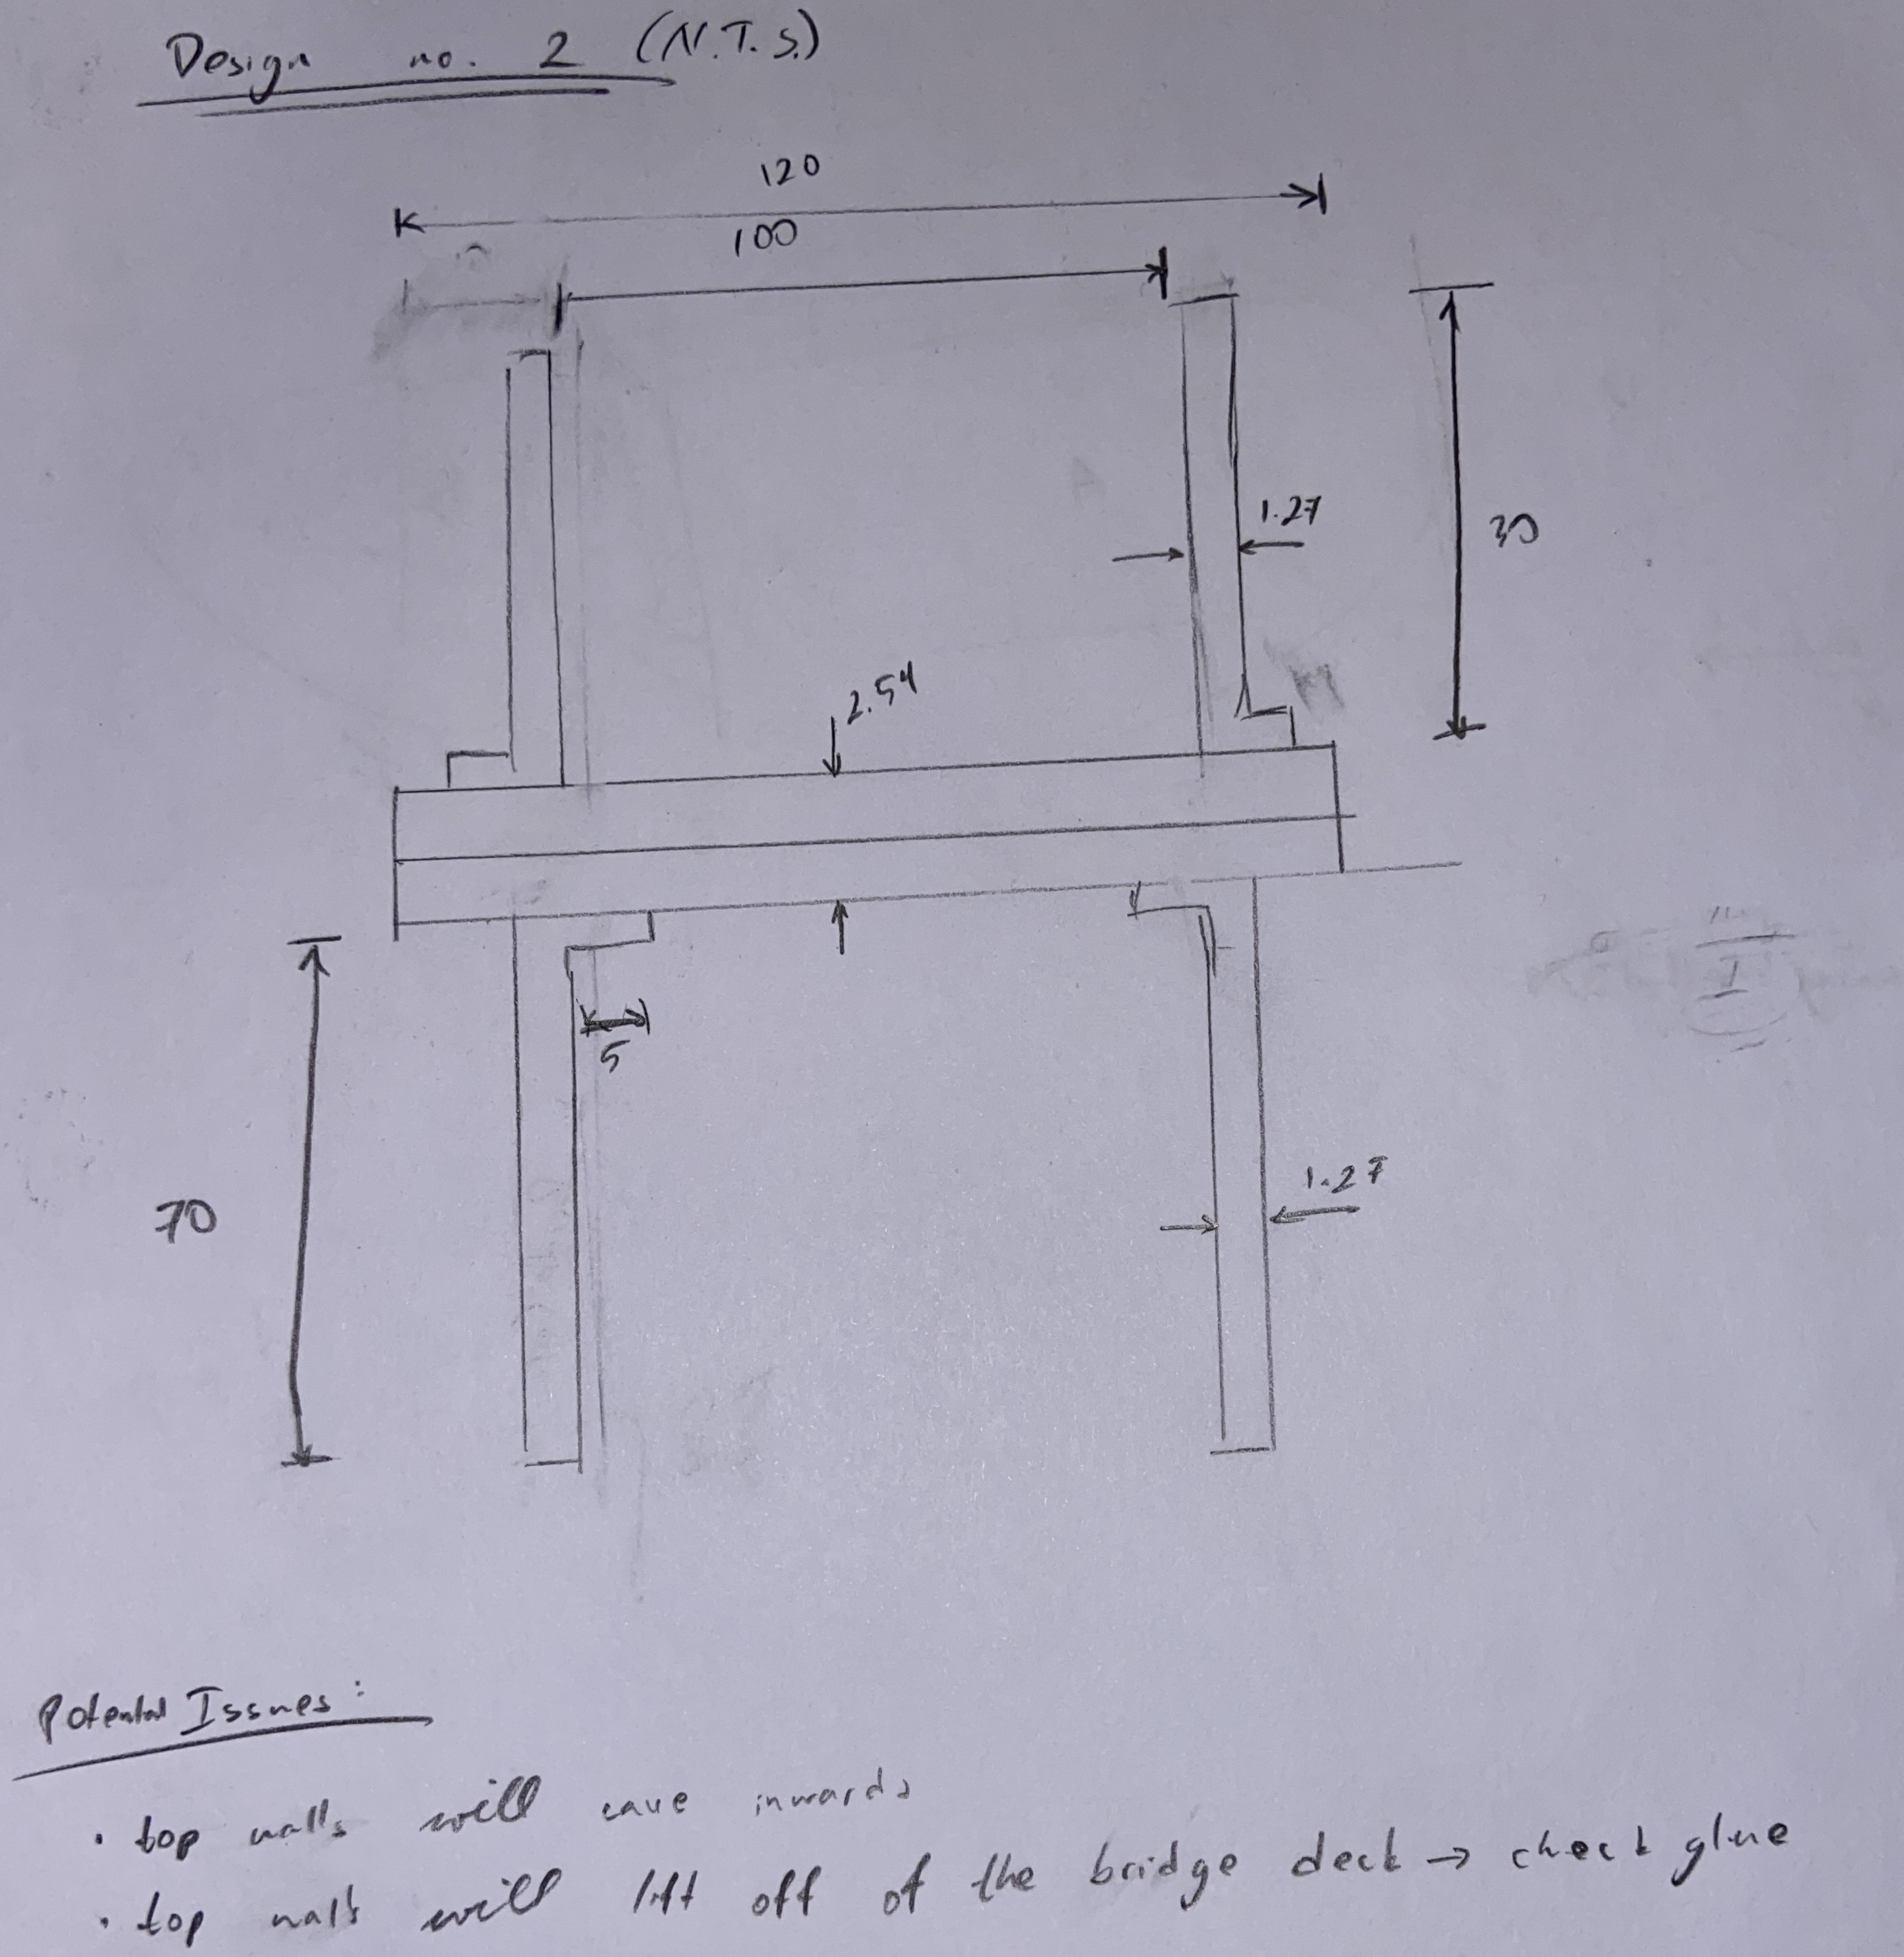 Design no. 2 (N.T.S.)
120
100
1.27
30
2.54
5
70
1.27
Potential Issues:
• top walls will cave inwards
• top walls will lift off of the bridge deck → check glue